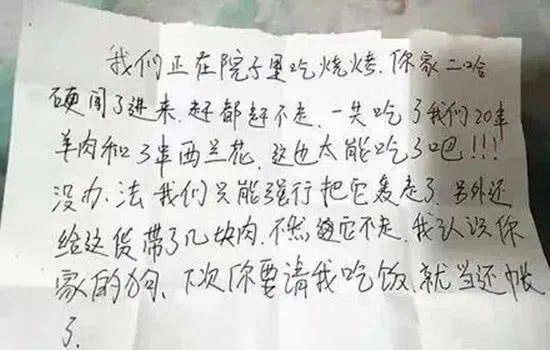 我们正在院子里吃烧烤.你家二哈
硬闯了进来.赶都赶不走.一共吃了我们20串
羊肉和3串西兰花.这也太能吃了吧!!!
没办.法我们只能强行把它轰走了.另外还
给这货带了几块肉.不然它不走.我认识你
家的狗、下次你要请我吃饭.就当还帐
了.